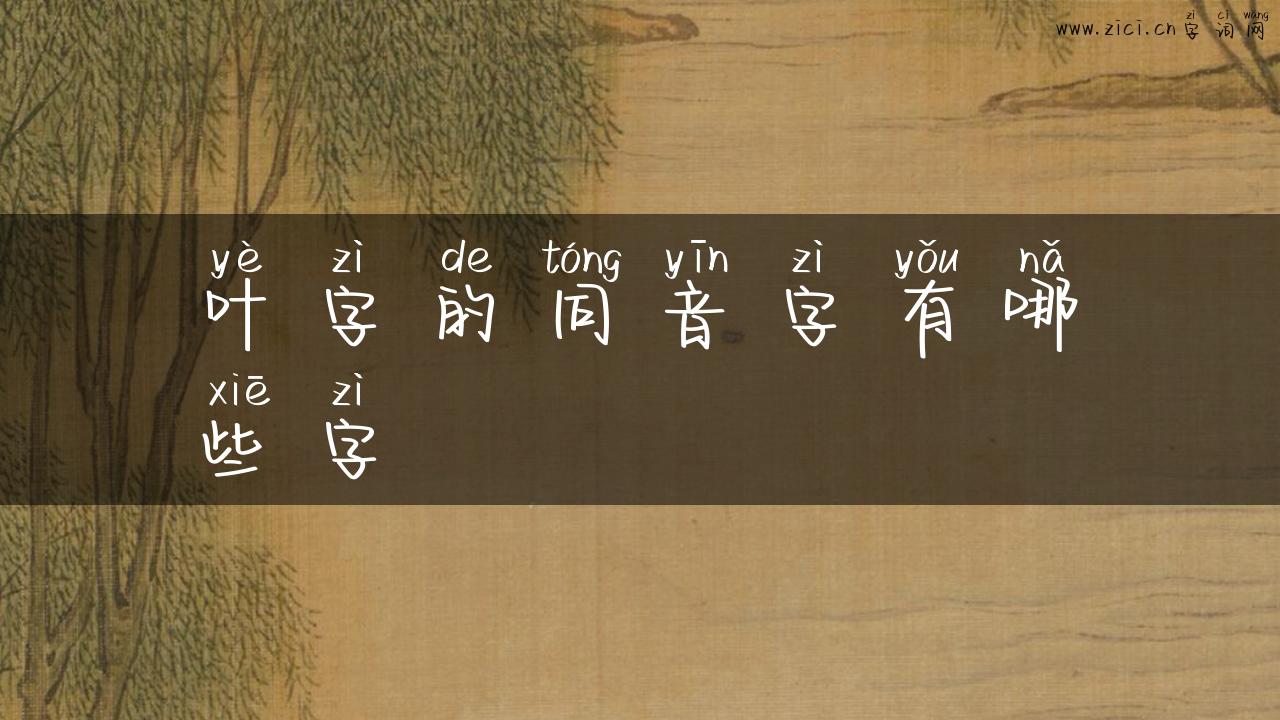 zì cí wǎng
www.zici.cn 字词网
yè zì de tóng yīn zì yǒu nǎ
叶字的同音字有哪
xiē zì
些字